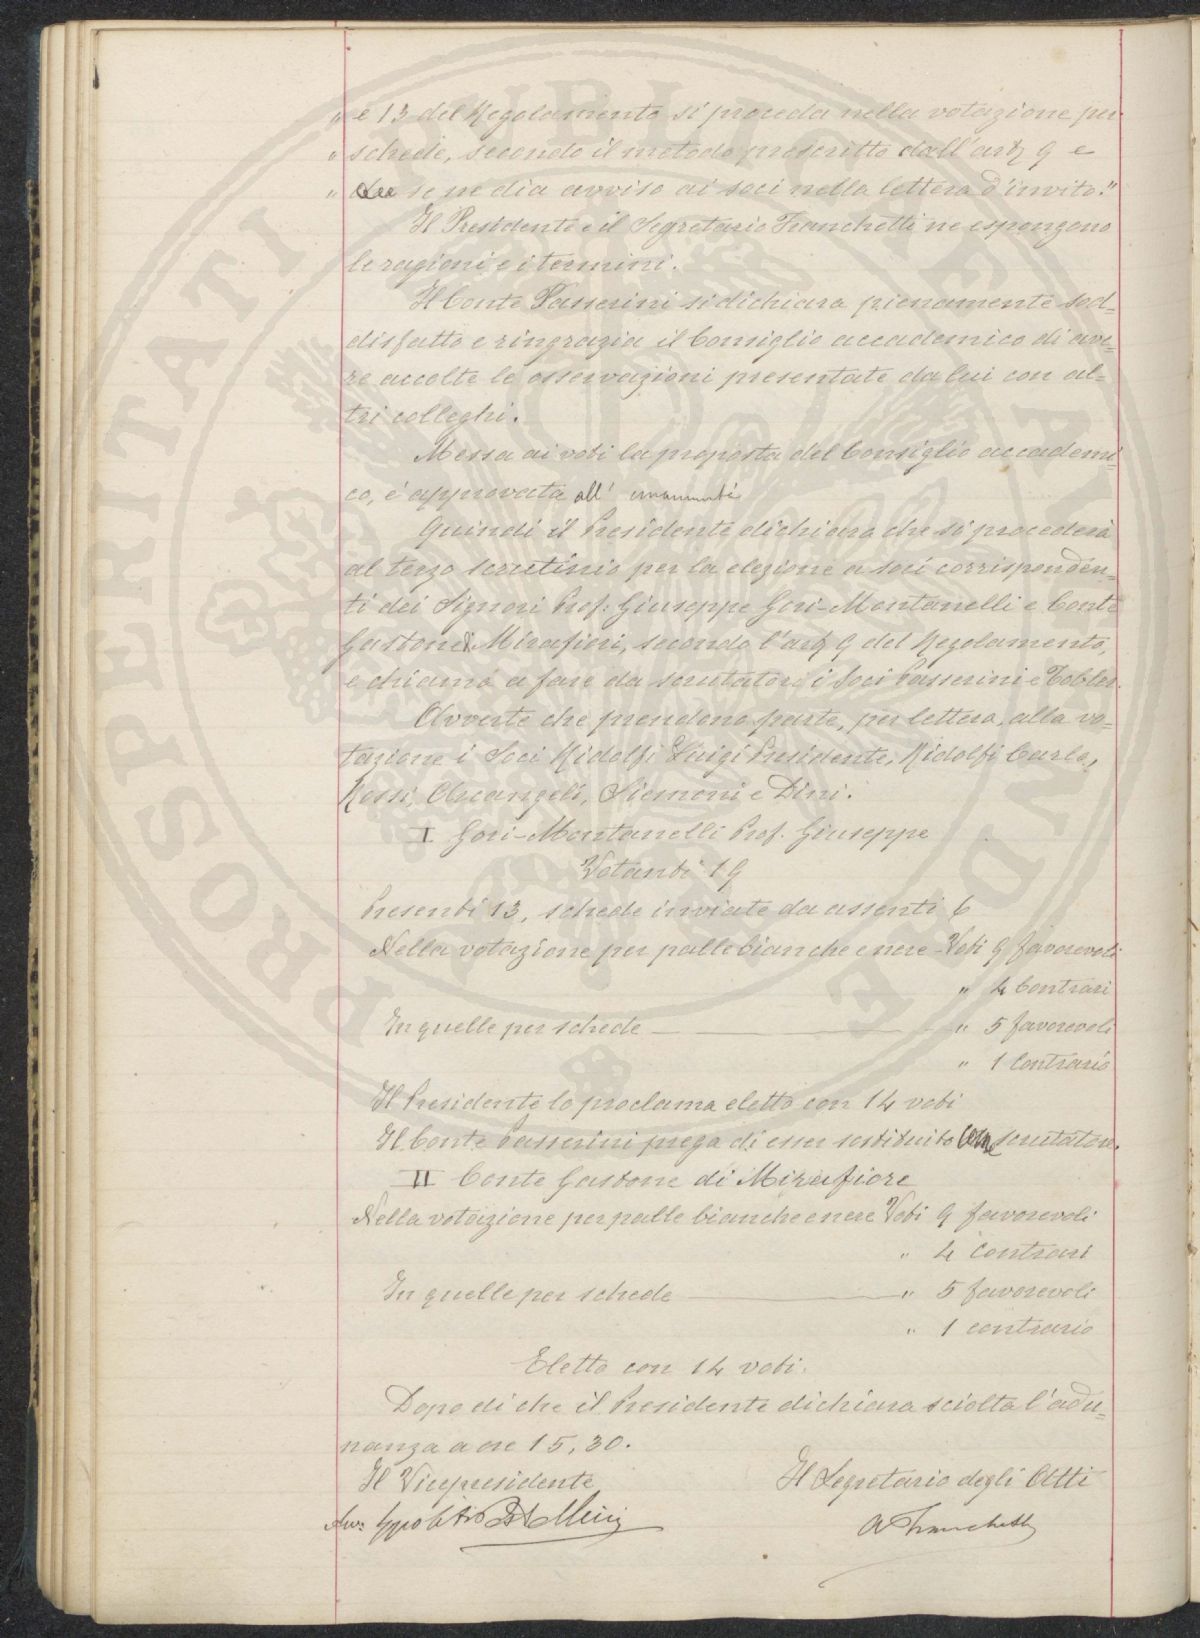 „ e 13 del Regolamento si proceda nella votazione per
„ schede, secondo il metodo prescritto dall'art 9 e
„ che se ne dia avviso ai soci nella lettera d'invito."
Il Presidente e il Segretario Franchetti ne espongono
le ragioni e i termini.
Il Conte Passerini si dichiara pienamente sod=
disfatto e ringrazia il Consiglio accademico di ave=
re accolte le osservazioni presentate da lui con al=
tri colleghi.
Messa ai voti la proposta del Consiglio accademi=
co, è approvata all' unanimità
Quindi il Presidente dichiara che si procederà
al terzo scrutinio per la elezione a soci corrisponden=
ti dei Signori Prof. Giuseppe Gori-Montanelli e Conte
Gastone di Mirafiori, secondo l'art 9 del Regolamento,
e chiama a fare da scrutatori i Soci Passerini e Tobler.
Avverte che prendono parte, per lettera, alla vo=
tazione i Soci Ridolfi Luigi Presidente, Ridolfi Carlo,
Rossi, Arcangeli, Siemoni e Dini.
I Gori-Montanelli Prof. Giuseppe
Votanti 19
Presenti 13, schede inviate da assenti 6
Nella votazione per palle bianche e nere - Voti 9 favorevoli
„ 4 Contrari
In quelle per schede — „ 5 favorevoli
„ 1 Contrario
Il Presidente lo proclama eletto con 14 voti
Il Conte Passerini prega di esser sostituito come scrutatore.
II Conte Gastone di Mirafiore
Nella votazione per palle bianche e nere Voti 9 favorevoli
„ 4 Contrari
In quelle per schede — „ 5 favorevoli
„ 1 contrario
Eletto con 14 voti.
Dopo di che il Presidente dichiara sciolta l'adu=
nanza a ore 15,30.
Il Vicepresidente
Il Segretario degli Atti
A Franchetti
PROSPERITATI PUBLICAE AUGENDAE